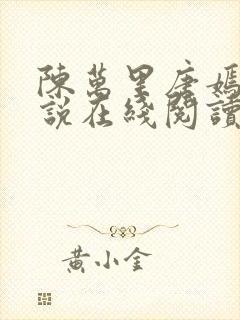 陳萬里唐嫣
說在綫閱讀
黃小全